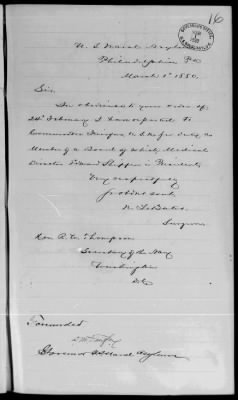 16
U. S. Naval Asylum
Philadelphia Pa
March 1st 1880.
Sir,
In obedience to your order of
24th February I have reported to
Commander Fairfax U. S. Navy
Member of a Board of which Medical
Director Edward Shippen is President
Very respectfully
Your obdt servt
Surgeon
Hon R. W. Thompson
Secretary of the Navy
Washington
D.C.
Forwarded
Governor Naval Asylum